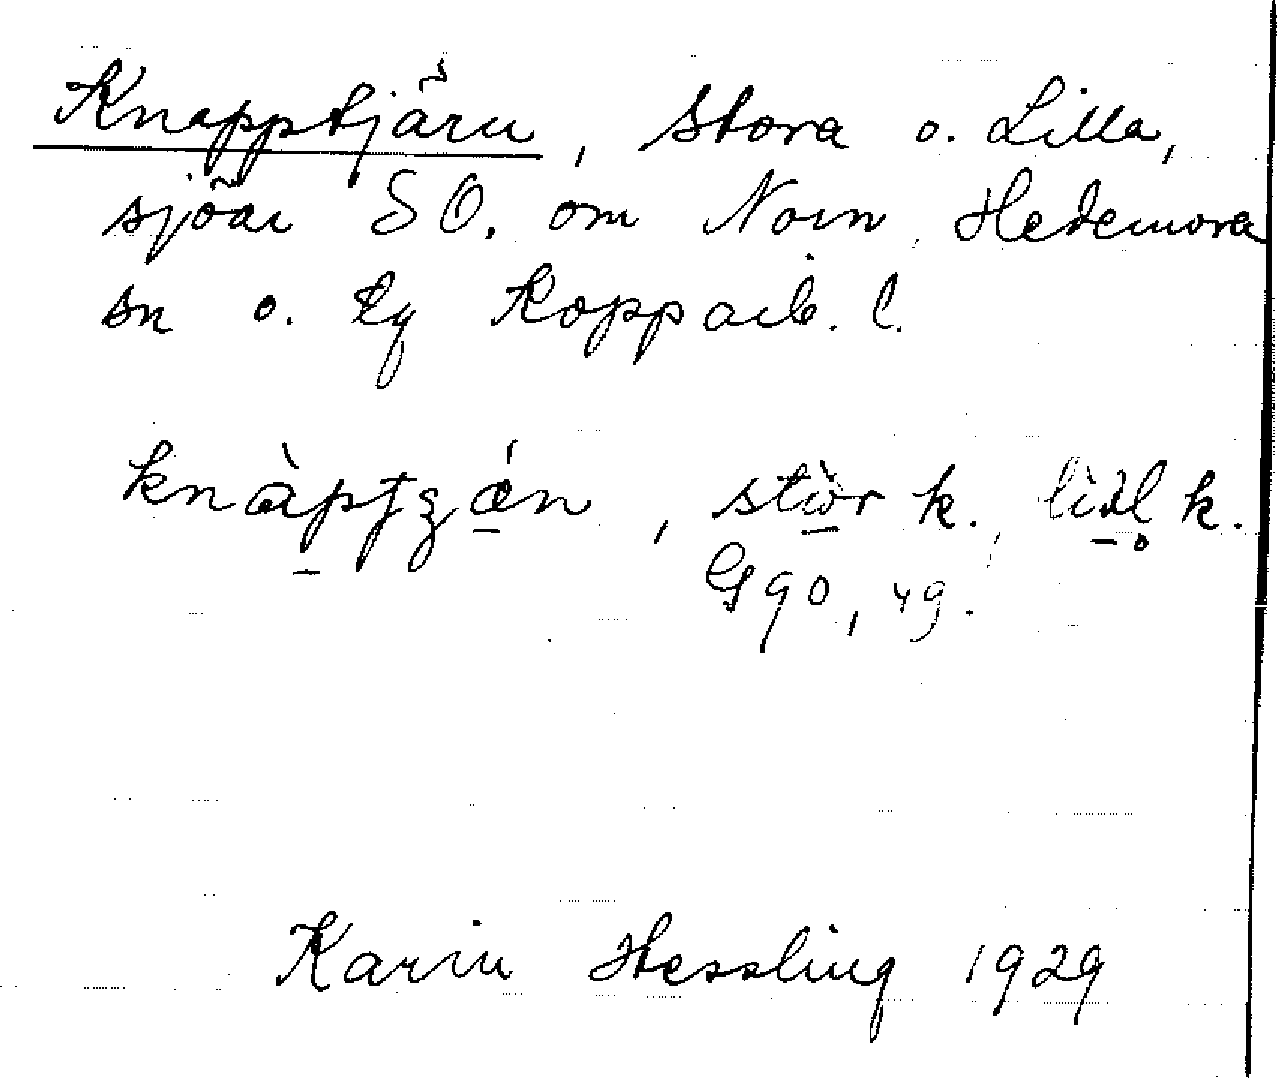 Knapptjärn, Stora o. Lilla,
sjöar SO. om Norn, Hedemora
sn o. tg Kopparb. l.
knàptʒǽn, stòr k., lìəl̥ k.
G 90, 49.
Karin Hessling 1929